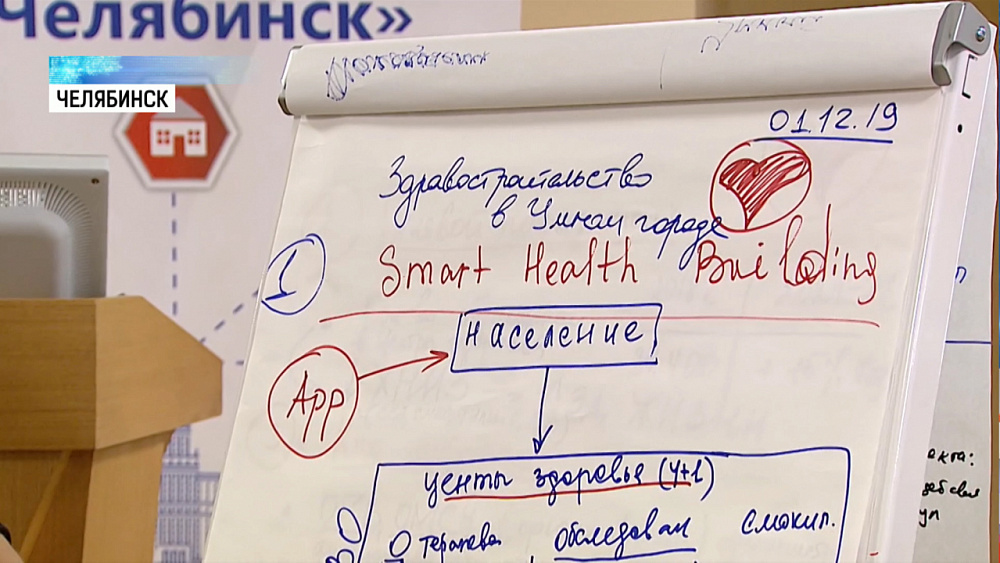 Челябинск»
ЧЕЛЯБИНСК
01.12.19
Здравостроительство
в Умном городе
1
Smart Health Building
население
App
центы здоровье (4+1)
терапевт
обследован
смокил.
акта: